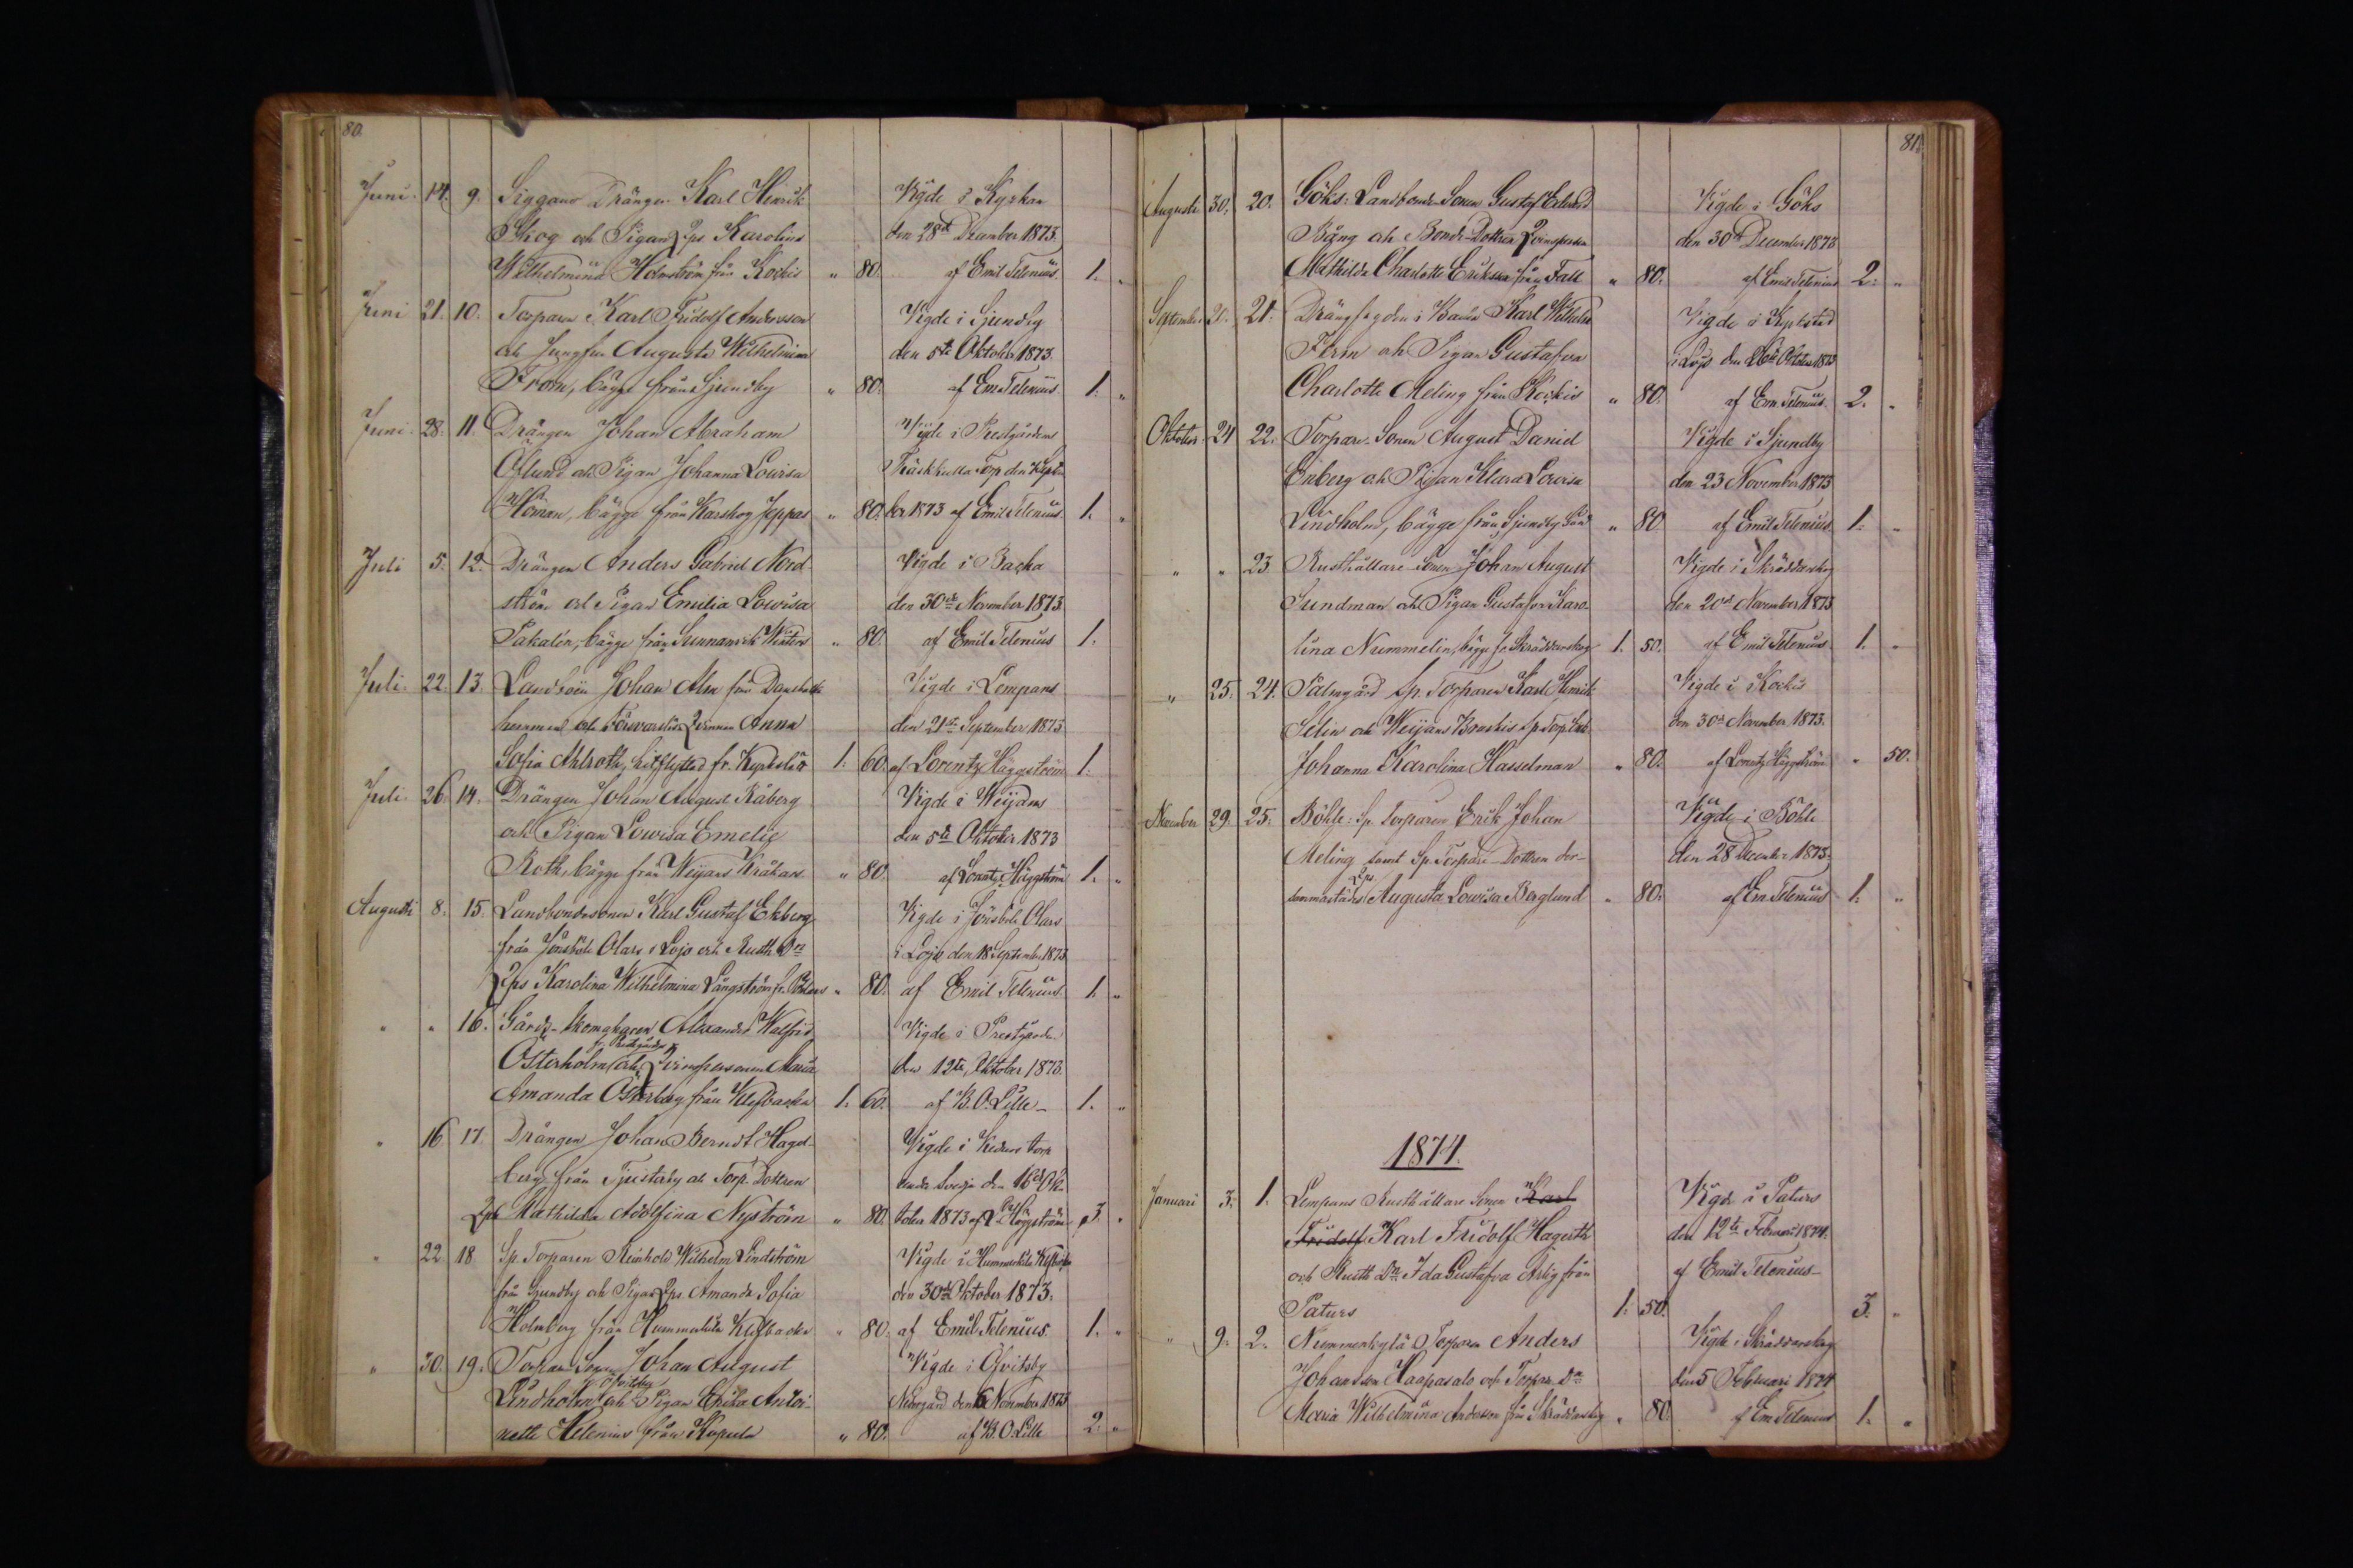 80.
Juni. 14. 9. Siggans Drängen Karl Henrik Vigde i Kyrkan
Skog och Pigan Qps Karolina den 28de December 1873.
Wilhelmina Holmström från Kockis " 80. af Emil Telenius. 1. "
Juni 21. 10. Torparen Karl Fridolf Andersson Vigde i Sjundby
och Jungfru Augusta Wilhelmina den 5te Oktober 1873.
From, bägge från Sjundby " 80. af Em. Telenius 1. "
Juni. 28. 11. Drängen Johan Abraham Vigde i Prestgårdens
Öflund och Pigan Johanna Lovisa Träskkulla Torp den
Höman, bägge från Karskog Jeppas " 80. ber 1873 af Emil Telenius 1. "
Juli 5. 12. Drängen Anders Gabriel Nord- Vigde i Backa
ström och Pigan Emilia Lovisa den 30de November 1873.
Sakalén, bägge från Sunnanvik " 80. af Emil Telenius 1.
Juli. 22. 13. Johan Alm från Vigde i Lempans
och Qvinnan Anna den 21sta September 1873
Sofia Ahlroth, hitflyttad fr. Kyrkslätt 1. 60. af Lorentz Häggström 1.
Juli. 26. 14. Drängen Johan August Råberg Vigde i Weijans
och Pigan Lovisa Emelie den 5te Oktober 1873
Roth, bägge från Weijans Kråkars " 80. af Lorentz Häggström 1. "
Augusti 8. 15. Landbondesonen Karl Gustaf Ekberg Vigde i Jönsböle Olars
från Jönsböle Olars i Lojo och Rusth. Dn i Lojo den 18 September 1873
Qps Karolina Wilhelmina Långström fr. " 80. af Emil Telenius 1. "
" " 16. Gårds-Skomakaren Alexander Walfrid Vigde i Prestgården
fr. Prestgården
Österholm och Qvinspersonen Maria den 12te Oktober 1873.
Amanda Österberg från Klefbacka 1. 60. af B. O. Lille - 1. "
" 16. 17. Drängen Johan Berndt Hagel- Vigde i torp
berg från Tjusterby och Torp. Dottren under Svedja den 16de Ok-
Qps Mathilda Adolfina Nyström " 80. tober 1873 af L. Häggström 3. "
" 22 18 Sp. Torparen Reinhold Wilhelm Lindström Vigde i Hummerkila Klefbacka
från Sjundby och Pigan Qps Amanda Sofia den 30de Oktober 1873.
Holmberg från Hummerkila Klefbacka " 80. af Emil Telenius. 1. "
" 30. 19. Torpare Sonen Johan August Vigde i Ofvitsby
Ofvitsby
Lindholm och Pigan Erika Antoi- Nedergård den 6 November 1873
nette Helenius från Kopula " 80. af B. O. Lille 2. "
81.
Augusti 30. 20. Göks: Landbonde Sonen Gustaf Erland Vigde i Göks
Bäng och Bonde-Dottren Qvinspersn den 30de December 1873
Mathilda Charlotta Eriksson från Fall " 80. af Emil Telenius 2. "
September 21. Drängfogden i Karl Wilhelm Vigde i
Ferm och Pigan Gustafva i Lojo den 26te Oktober 1873
Charlotta Meling från Kockis " 80. af Em. Telenius 2. "
Oktober 24 22. Torpare-Sonen August Daniel Vigde i Sjundby
Enberg och Pigan Klara Lovisa den 23 November 1873
Lindholm, bägge från Sjundby Gård " 80 af Emil Telenius 1. "
" " 23. Rusthållare Sonen Johan August Vigde i Skräddarskog
Sundman och Pigan Gustafva Karo- den 20de November 1873
lina Nummelin, bägge fr. Skräddarskog 1. 50. af Emil Telenius 1. "
" 25. 24. Palmgård Sp. Torparen Karl Henrik Vigde i Kockis
Selin och Weijans den 30de November 1873.
Johanna Karolina Hasselman " 80. af Lorentz Häggström " 50.
November 29. 25. Böhle: Sp. Torparen Erik Johan Vigde i Böhle
Meling samt Sp. Torpare-Dottren der- den 28 December 1873.
Qps
sammastädes Augusta Lovisa Berglund " 80. af Em. Telenius 1. "
1874.
Januari 3. 1. Lempans Rusthållare Sonen Karl Vigde i Paturs
Fridolf Karl Fridolf Hagerth den 12te Februari 1874.
och Rusth. Dn Ida Gustafva Arlig från af Emil Telenius
Paturs 1. 50. 3. "
" 9. 2. Nummenkylä Torparen Anders Vigde i Skräddarskog
Johansson Haapasalo och Torpare Dn den 5 Februari 1874
Maria Wilhelmina Andersson från Skräddarskog " 80 af Em. Telenius 1. "